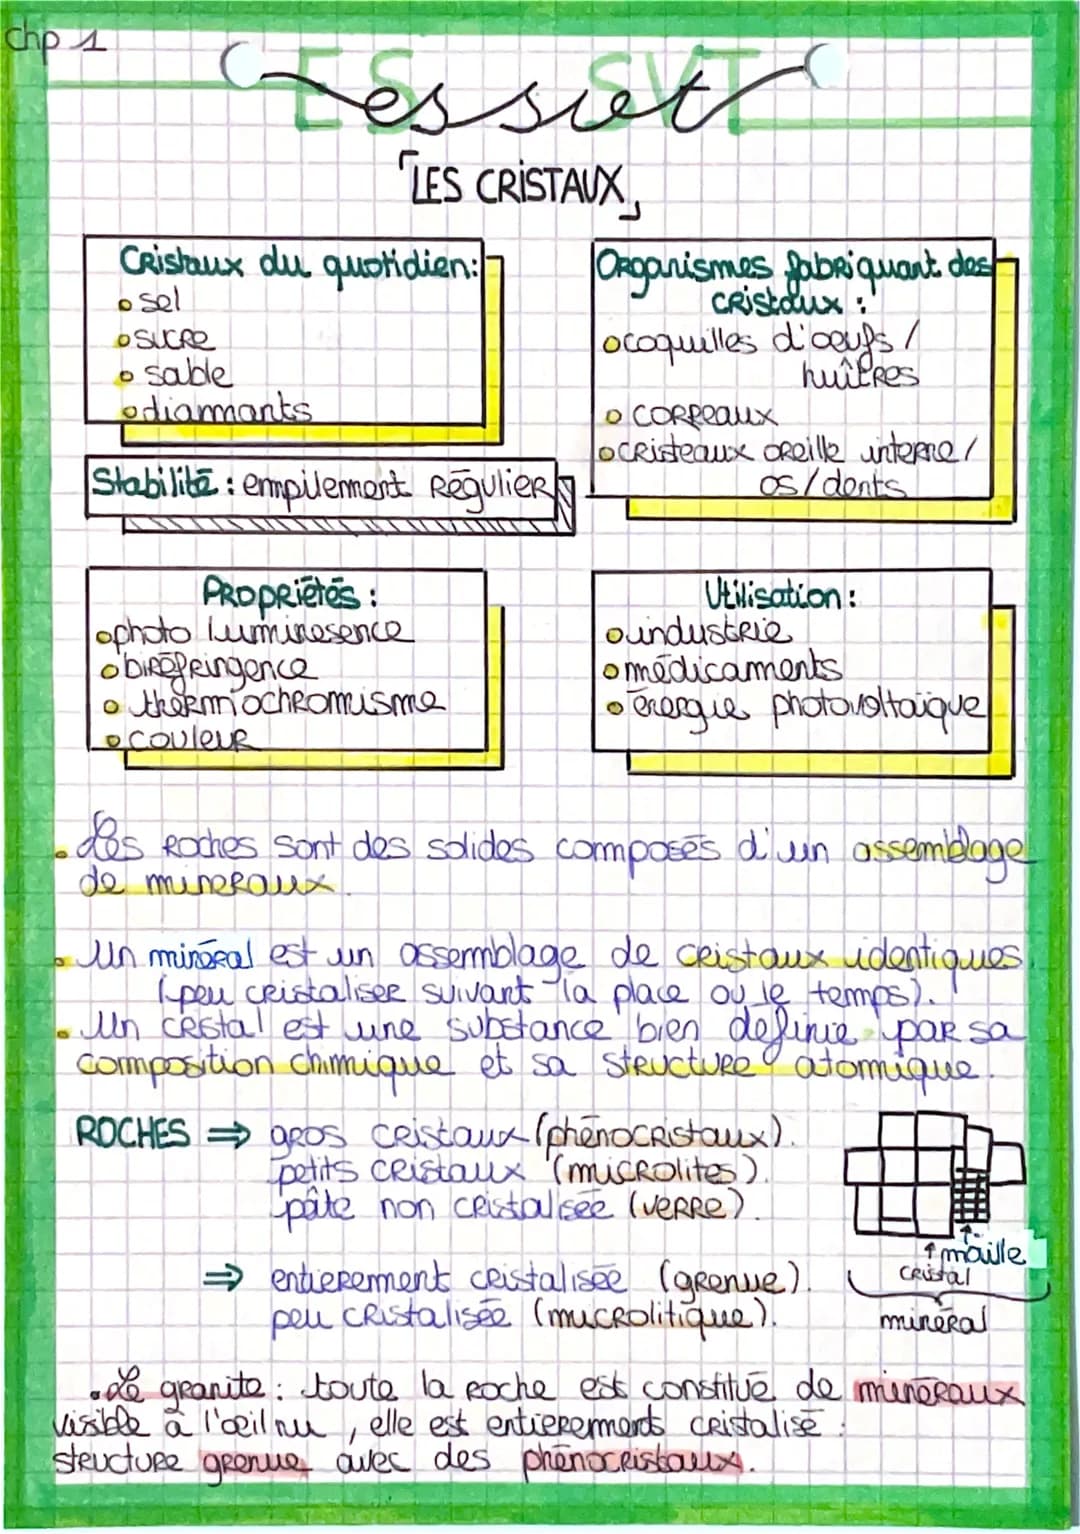 Chp 1
ES SVT
es svt
「LES CRISTAUX」
Cristaux du quotidien:
sel
sucre
sable
diammants
Organismes fabriquant des
cristaux :
coquilles d'oeufs /
huîtres
correaux
cristeaux oreille interne /
os / dents
Stabilité : empilement régulier
Propriétés :
photo luminesence
biréfringence
thermochromisme
couleur
Utilisation :
industrie
médicaments
énergie photovoltaïque
Les roches sont des solides composés d'un assemblage
de mineraux.
Un minéral est un assemblage de cristaux identiques.
(peu cristaliser suivant la place ou le temps).
Un cristal est une substance bien definie par sa
composition chimique et sa structure atomique.
ROCHES ⇒ gros cristaux (phénocristaux).
petits cristaux (microlites).
pâte non cristalisée (verre).
⇒ entierement cristalisée (grenue).
peu cristalisée (microlitique).
maille
cristal
minéral
Le granite : toute la roche est constitué de minéraux
visible à l'œil nu, elle est entierements cristalisé :
structure grenue avec des phénocristaux.